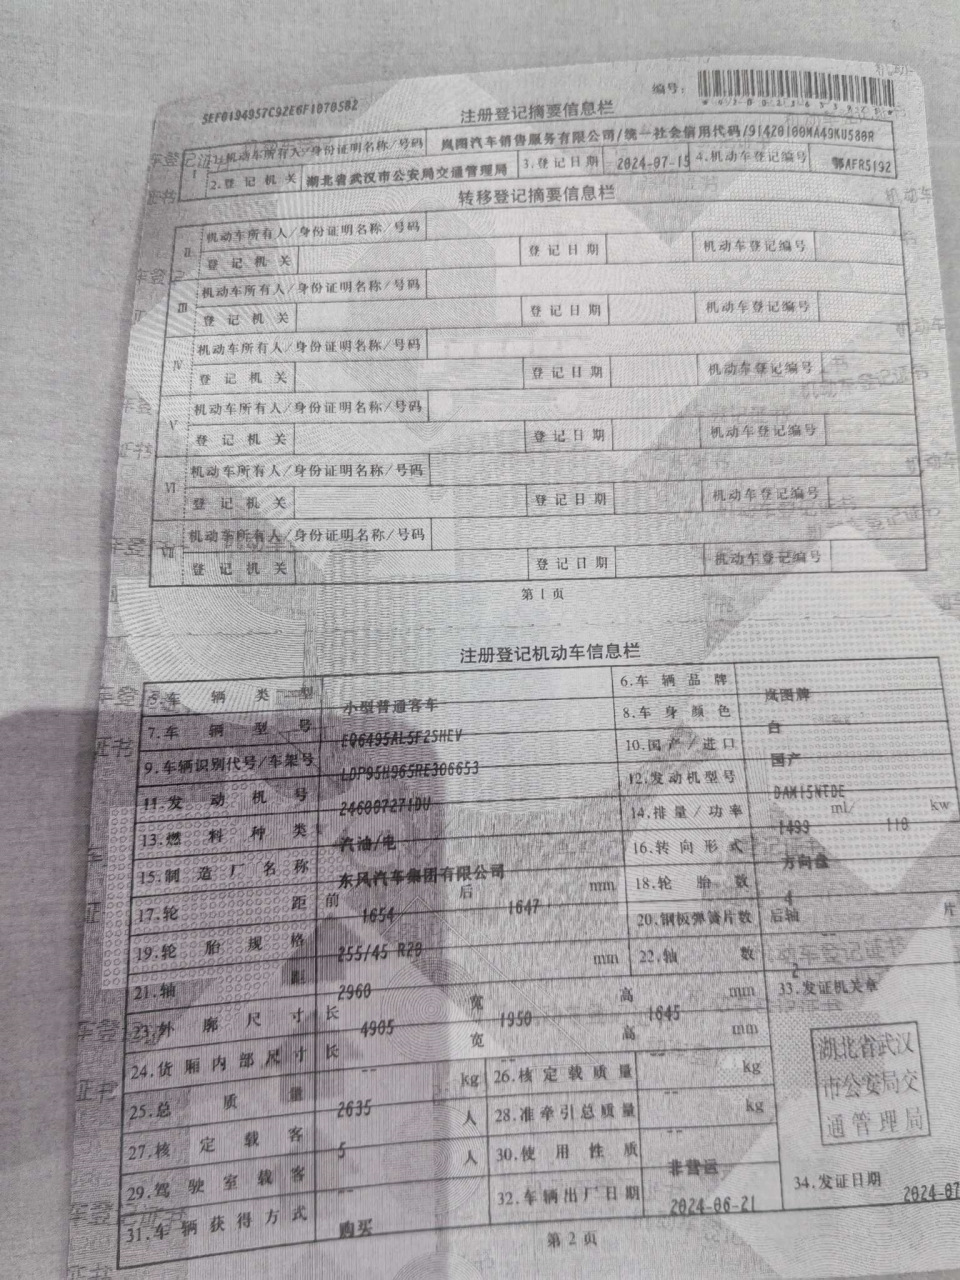 编号：
5EF0194957C92E6F1070582
注册登记摘要信息栏
I 1.机动车所有人/身份证明名称/号码 岚图汽车销售服务有限公司/统一社会信用代码/91420100MA49KU588R
2.登记机关 湖北省武汉市公安局交通管理局 3.登记日期 2024-07-15 4.机动车登记编号 鄂AFR5192
转移登记摘要信息栏
II 机动车所有人/身份证明名称/号码
登记机关 登记日期 机动车登记编号
III 机动车所有人/身份证明名称/号码
登记机关 登记日期 机动车登记编号
IV 机动车所有人/身份证明名称/号码
登记机关 登记日期 机动车登记编号
V 机动车所有人/身份证明名称/号码
登记机关 登记日期 机动车登记编号
VI 机动车所有人/身份证明名称/号码
登记机关 登记日期 机动车登记编号
VII 机动车所有人/身份证明名称/号码
登记机关 登记日期 机动车登记编号
第1页
注册登记机动车信息栏
5.车辆类型 小型普通客车 6.车辆品牌 岚图牌
7.车辆型号 EQ6495AL5F25HEV 8.车身颜色 白
9.车辆识别代号/车架号 LDP95H965RE306653 10.国产/进口 国产
11.发动机号 246007271DU 12.发动机型号 DAM15NTDE
13.燃料种类 汽油/电 14.排量/功率 1499 ml/ 110 kw
15.制造厂名称 东风汽车集团有限公司 16.转向形式 方向盘
17.轮距 前 1654 后 1647 mm 18.轮胎数 4
19.轮胎规格 255/45 R20 20.钢板弹簧片数 后轴 -- 片
21.轴距 2960 mm 22.轴数 2
23.外廓尺寸 长 4905 宽 1950 高 1645 mm 33.发证机关章
24.货厢内部尺寸 长 -- 宽 -- 高 -- mm
25.总质量 2635 kg 26.核定载质量 -- kg
27.核定载客 5 人 28.准牵引总质量 -- kg
29.驾驶室载客 -- 人 30.使用性质 非营运
31.车辆获得方式 购买 32.车辆出厂日期 2024-06-21 34.发证日期 2024-07
湖北省武汉
市公安局交
通管理局
第2页